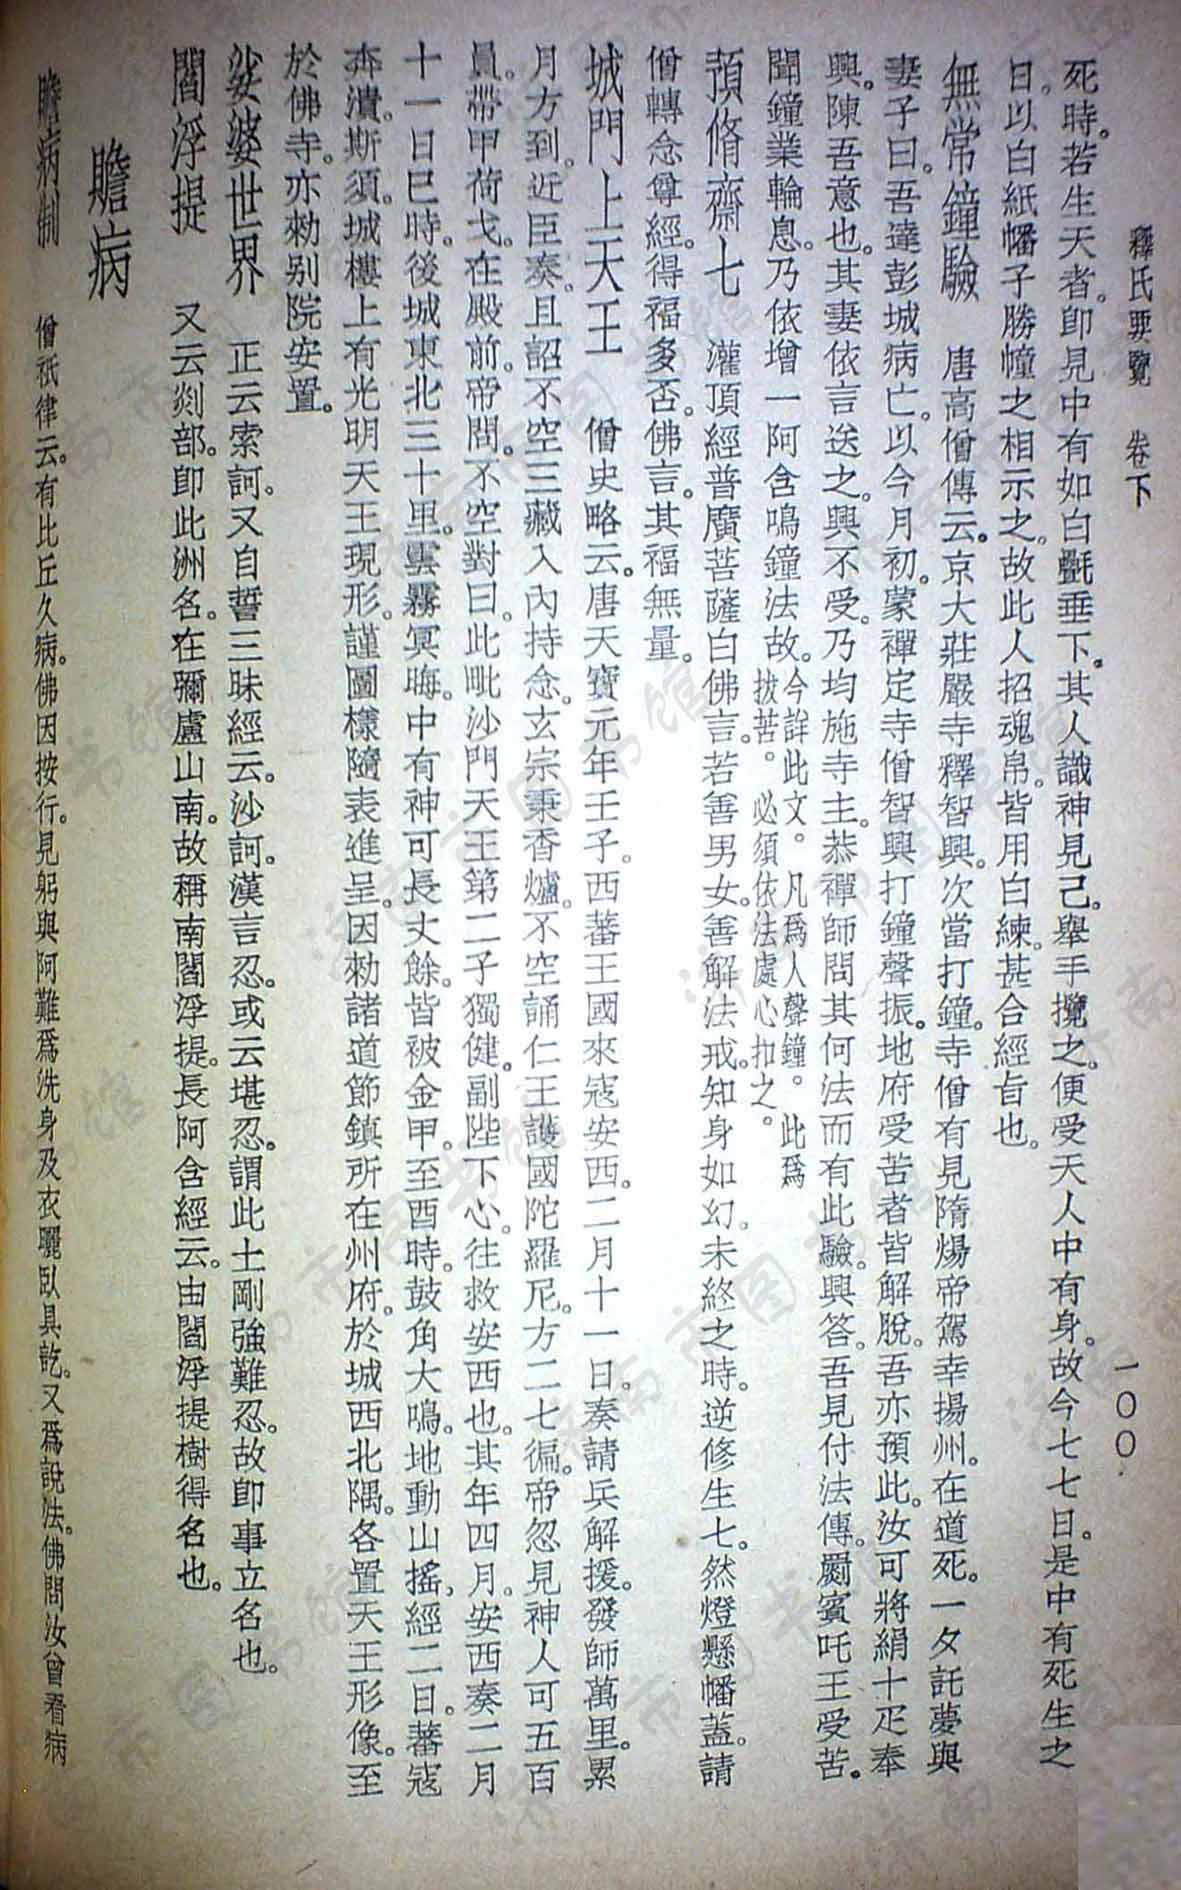 釋氏要覽　卷下　一〇〇
死時。若生天者。卽見中有如白㲲垂下。其人識神見己。舉手攬之。便受天人中有身。故今七七日。是中有死生之
日。以白紙幡子勝幢之相示之。故此人招魂帛。皆用白練。甚合經旨也。
無常鐘驗　唐高僧傳云。京大莊嚴寺釋智興。次當打鐘。寺僧有見隋煬帝駕幸揚州。在道死。一夕託夢與
妻子曰。吾達彭城病亡。以今月初。蒙禪定寺僧智興打鐘聲振。地府受苦者皆解脫。吾亦預此。汝可將絹十疋奉
興。陳吾意也。其妻依言送之。興不受。乃均施寺主。恭禪師問其何法而有此驗。興答。吾見付法傳。罽賓吒王受苦。
聞鐘業輪息。乃依增一阿含鳴鐘法故。今詳此文。凡爲人聲鐘。此爲
拔苦。必須依法處心扣之。
預脩齋七　灌頂經普廣菩薩白佛言。若善男女。善解法戒。知身如幻。未終之時。逆修生七。然燈懸幡蓋。請
僧轉念尊經。得福多否。佛言。其福無量。
城門上天王　僧史略云。唐天寶元年壬子。西蕃王國來寇安西。二月十一日。奏請兵解援。發師萬里。累
月方到。近臣奏。且詔不空三藏入內持念。玄宗秉香爐。不空誦仁王護國陀羅尼。方二七徧。帝忽見神人可五百
員。帶甲荷戈。在殿前。帝問。不空對曰。此毗沙門天王第二子獨健。副陛下心。往救安西也。其年四月。安西奏二月
十一日巳時。後城東北三十里。雲霧冥晦。中有神可長丈餘。皆被金甲。至酉時。鼓角大鳴。地動山搖。經二日。蕃寇
奔潰。斯須。城樓上有光明天王現形。謹圖樣隨表進呈。因勑諸道節鎮所在州府。於城西北隅。各置天王形像。至
於佛寺。亦勑別院安置。
娑婆世界　正云索訶。又自誓三昧經云。沙訶。漢言忍。或云堪忍。謂此土剛強難忍。故卽事立名也。
閻浮提　又云剡部。卽此洲名。在彌盧山南。故稱南閻浮提。長阿含經云。由閻浮提樹得名也。
瞻病
瞻病制　僧祇律云。有比丘久病。佛因按行。見躬與阿難爲洗身及衣曬臥具訖。又爲說法。佛問汝曾看病